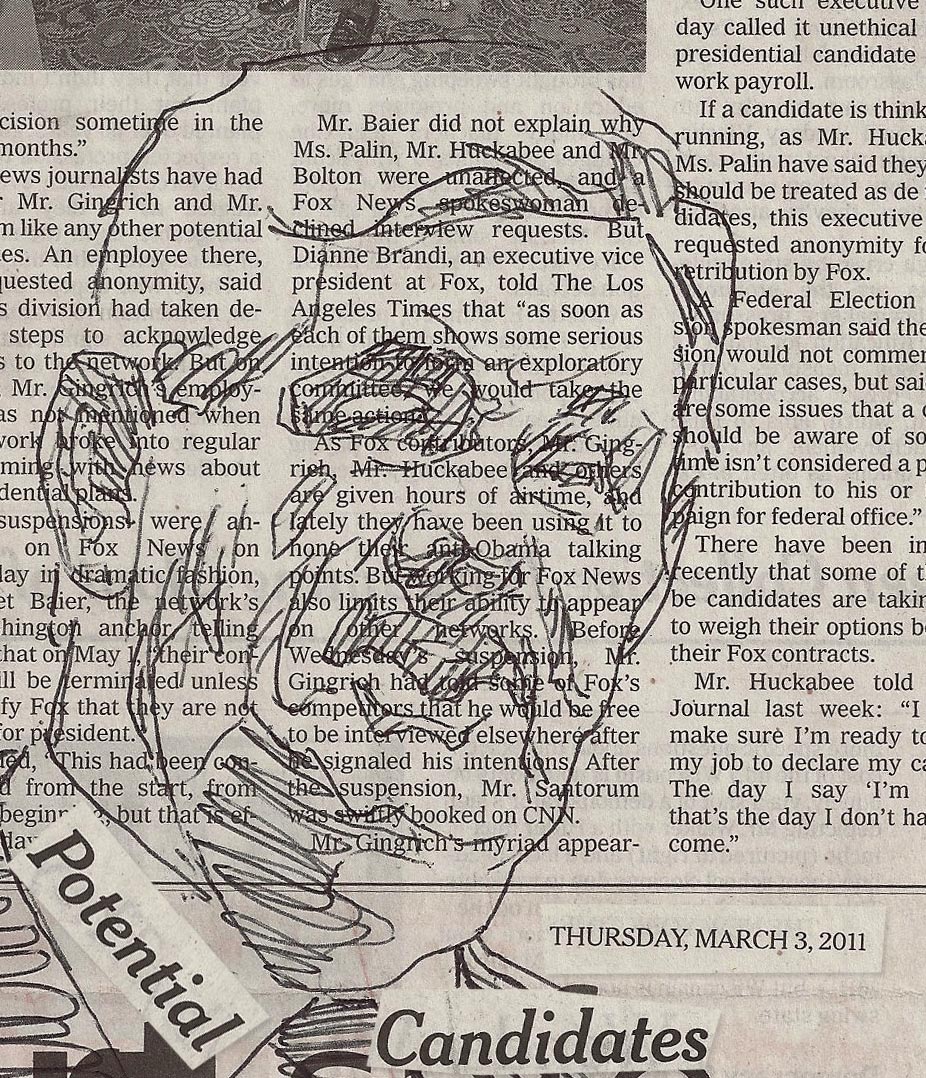 cision sometime in the
months.”
ews journalists have had
r Mr. Gingrich and Mr.
m like any other potential
es. An employee there,
quested anonymity, said
s division had taken de-
steps to acknowledge
s to the network. But on
Mr. Gingrich’s employ-
as not mentioned when
work broke into regular
ming with news about
dential plans.
suspensions were an-
on Fox News on
lay in dramatic fashion,
et Baier, the network’s
hington anchor, telling
that on May 1, “their con-
ll be terminated unless
fy Fox that they are not
for president.”
ed, “This had been con-
d from the start, from
beginn , but that is ef-
day
Mr. Baier did not explain why
Ms. Palin, Mr. Huckabee and Mr.
Bolton were unaffected, and a
Fox News spokeswoman de-
clined interview requests. But
Dianne Brandi, an executive vice
president at Fox, told The Los
Angeles Times that “as soon as
each of them shows some serious
intention to form an exploratory
committee, we would take the
same action.”
As Fox contributors, Mr. Ging-
rich, Mr. Huckabee and others
are given hours of airtime, and
lately they have been using it to
hone their anti-Obama talking
points. But working for Fox News
also limits their ability to appear
on other networks. Before
Wednesday’s suspension, Mr.
Gingrich had told some of Fox’s
competitors that he would be free
to be interviewed elsewhere after
he signaled his intentions. After
the suspension, Mr. Santorum
was swiftly booked on CNN.
Mr. Gingrich’s myriad appear-
One such executive
day called it unethical
presidential candidate
work payroll.
If a candidate is think
running, as Mr. Hucka
Ms. Palin have said they
should be treated as de
didates, this executive
requested anonymity fo
retribution by Fox.
A Federal Election
sion spokesman said the
sion would not commen
particular cases, but sai
are some issues that a c
should be aware of so
time isn’t considered a p
contribution to his or
paign for federal office.”
There have been in
recently that some of t
be candidates are takin
to weigh their options b
their Fox contracts.
Mr. Huckabee told
Journal last week: “I
make sure I’m ready to
my job to declare my ca
The day I say ‘I’m
that’s the day I don’t ha
come.”
THURSDAY, MARCH 3, 2011
Potential
Candidates